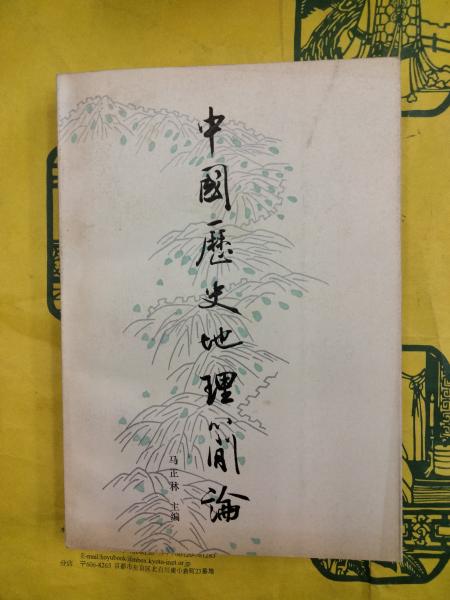 中國歷史地理简論
马正林 主编
E-mail:hoyubook@mbox.kyoto-inet.or.jp
分店 〒606-8265 京都市左京区北白川東小倉町23番地